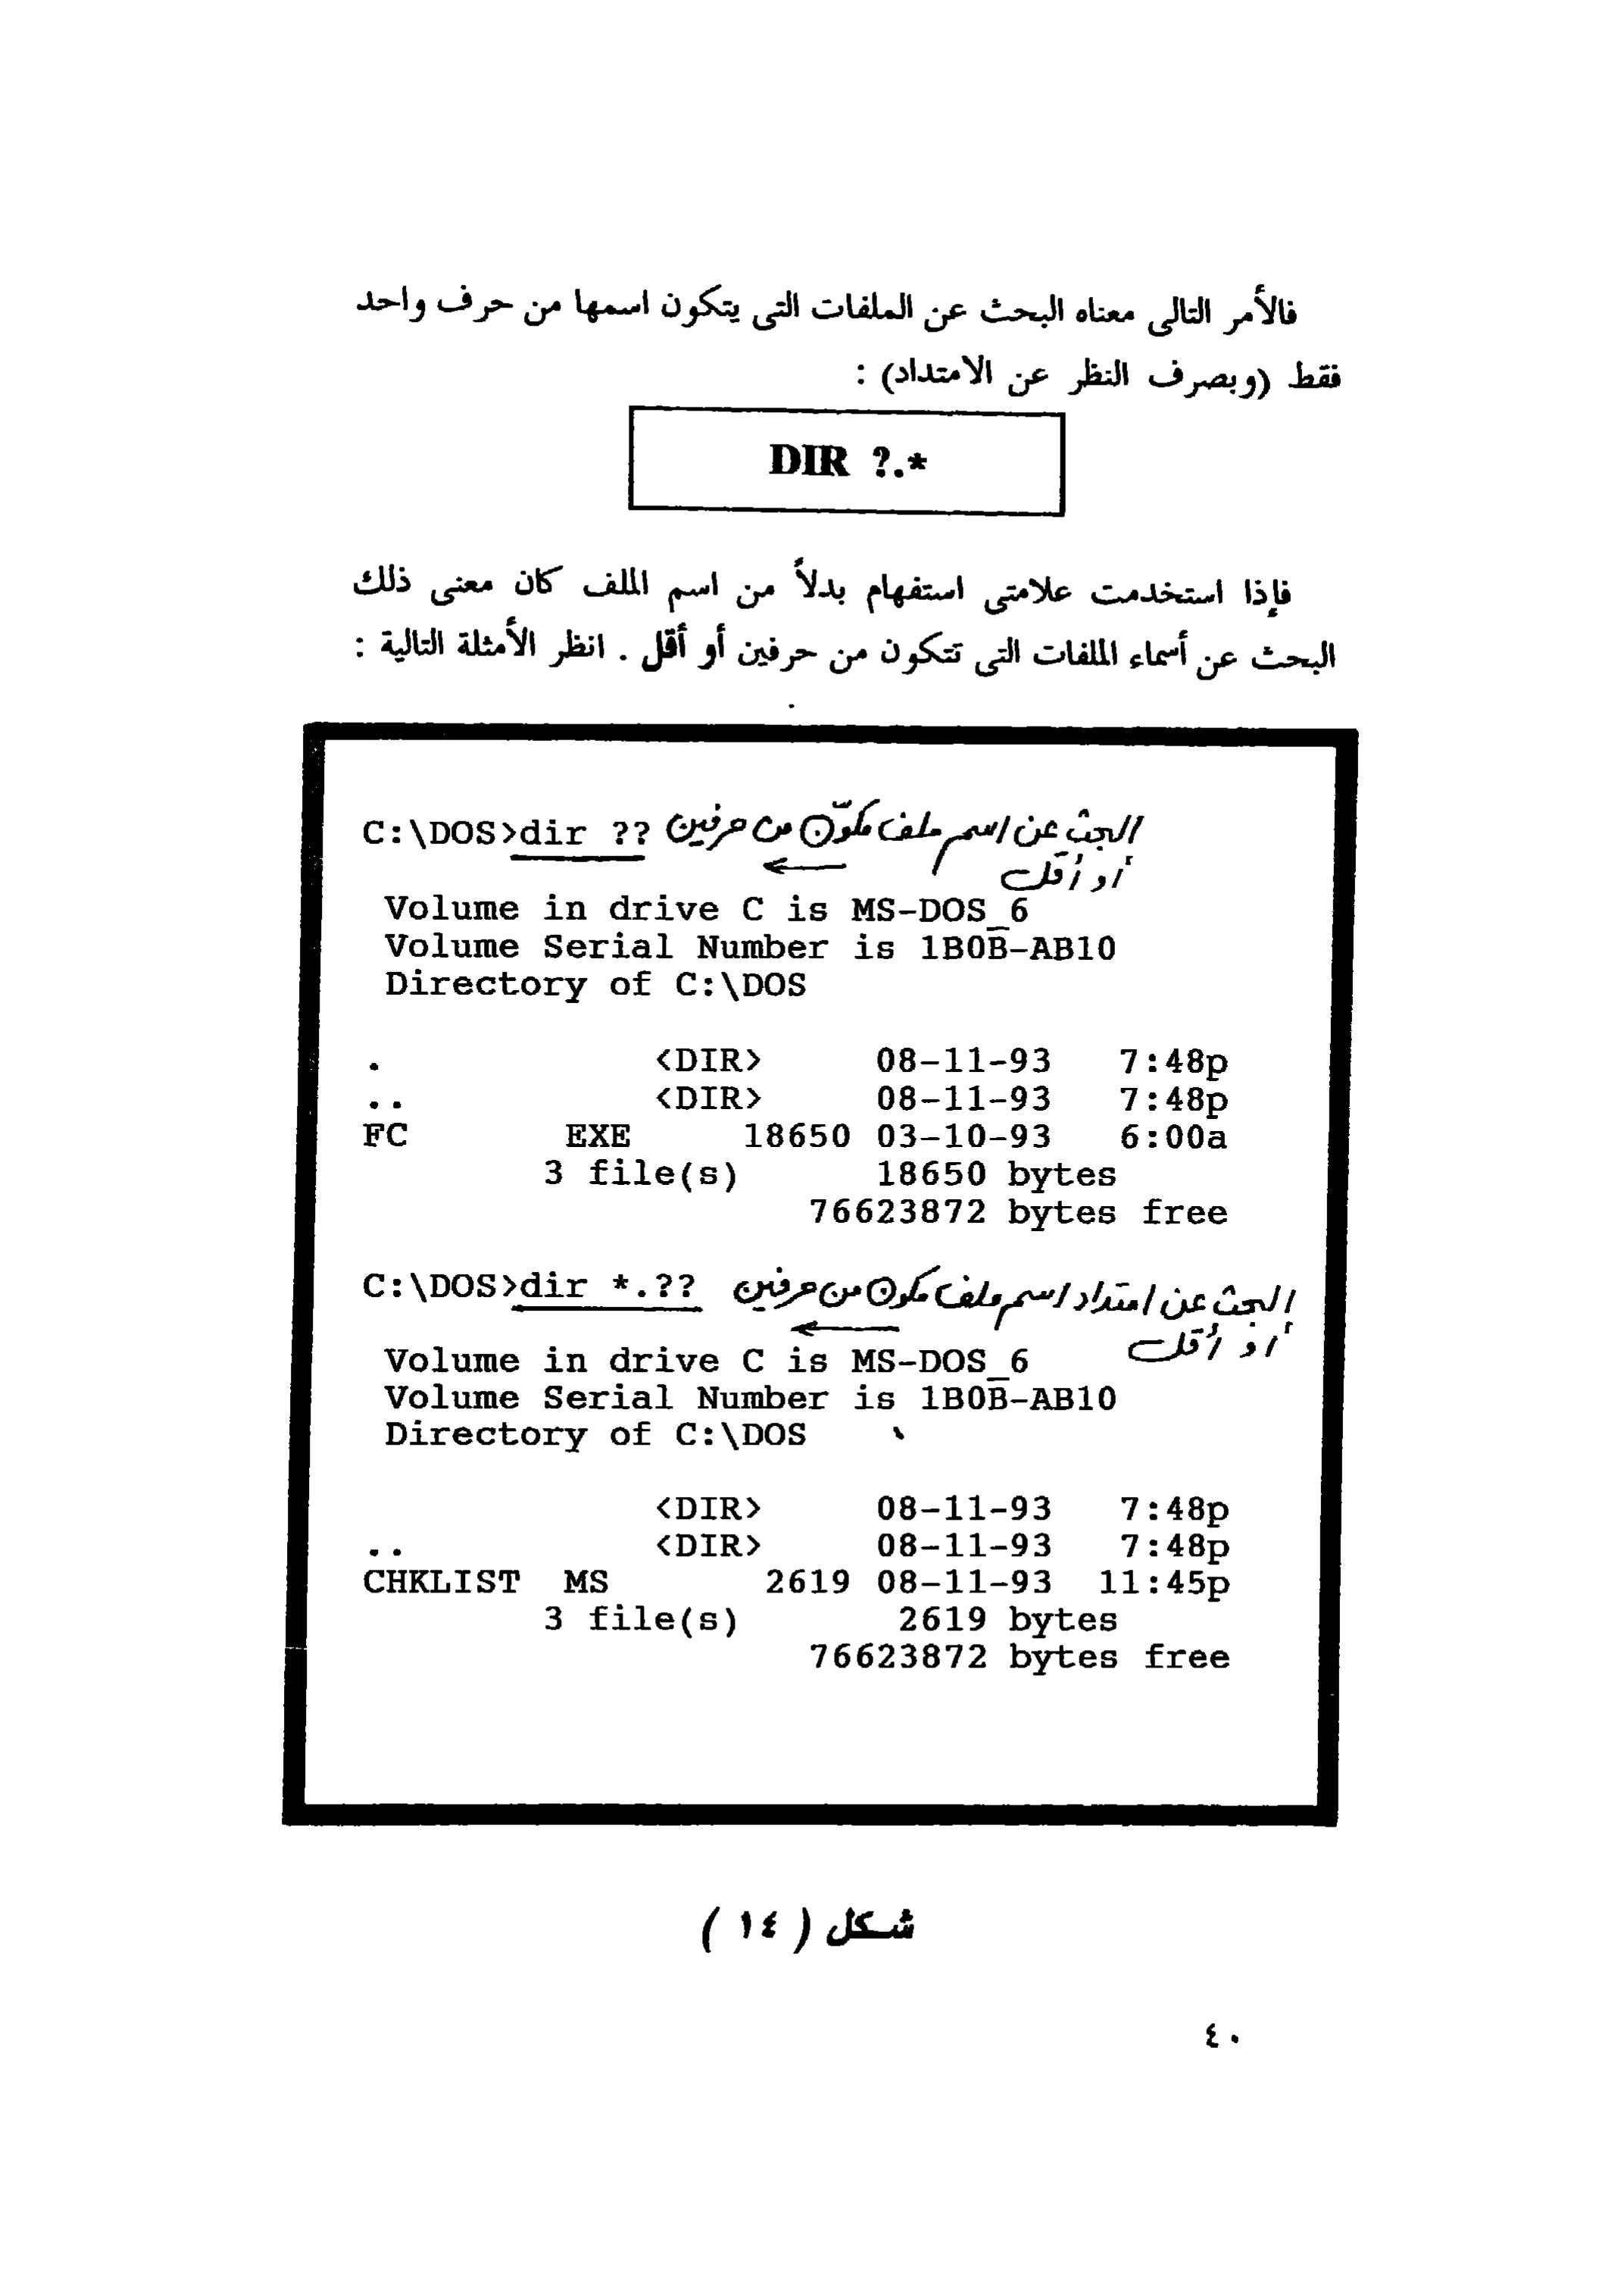 فالأمر التالى معناه البحث عن الملفات التى يتكون اسمها من حرف واحد
فقط (وبصرف النظر عن الامتداد) :
DIR ?.*
فإذا استخدمت علامتى استفهام بدلاً من اسم الملف كان معنى ذلك
البحث عن أسماء الملفات التى تتكون من حرفين أو أقل . انظر الأمثلة التالية :
C:\DOS>dir ?? البحث عن اسم ملف مكوّن من حرفين
أو أقل
Volume in drive C is MS-DOS_6
Volume Serial Number is 1B0B-AB10
Directory of C:\DOS
. <DIR> 08-11-93 7:48p
.. <DIR> 08-11-93 7:48p
FC EXE 18650 03-10-93 6:00a
3 file(s) 18650 bytes
76623872 bytes free
C:\DOS>dir *.?? البحث عن امتداد اسم ملف مكون من حرفين
أو أقل
Volume in drive C is MS-DOS_6
Volume Serial Number is 1B0B-AB10
Directory of C:\DOS
<DIR> 08-11-93 7:48p
.. <DIR> 08-11-93 7:48p
CHKLIST MS 2619 08-11-93 11:45p
3 file(s) 2619 bytes
76623872 bytes free
شكل ( ١٤ )
٤٠